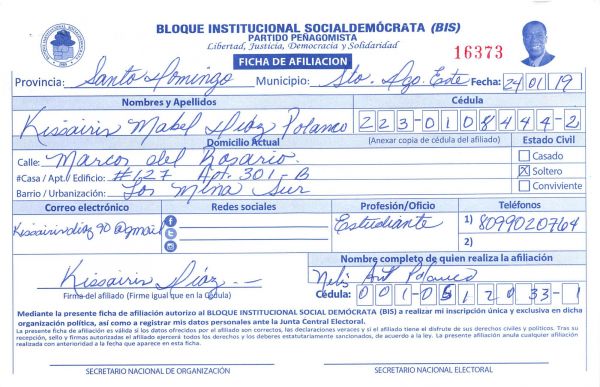 BLOQUE INSTITUCIONAL SOCIALDEMÓCRATA (BIS)
PARTIDO PEÑAGOMISTA
Libertad, Justicia, Democracia y Solidaridad
FICHA DE AFILIACION
16373
Provincia: Santo Domingo Municipio: Sto. Dgo. Este Fecha: 24 01 19
Nombres y Apellidos Cédula
Kissairis Mabel Díaz Polanco 223-0108444-2
Domicilio Actual (Anexar copia de cédula del afiliado) Estado Civil
Calle: Marcos del Rosario. Casado
#Casa / Apt./ Edificio: #127 Apt. 301-B X Soltero
Barrio / Urbanización: Los Mina Sur Conviviente
Correo electrónico Redes sociales Profesión/Oficio Teléfonos
Kissairisdiaz90@gmail Estudiante 1) 8099020764
2)
Nombre completo de quien realiza la afiliación
Kissairis Díaz Nelis Ant Polanco
Firma del afiliado (Firme igual que en la Cédula) Cédula: 001-0512033-1
Mediante la presente ficha de afiliación autorizo al BLOQUE INSTITUCIONAL SOCIAL DEMÓCRATA (BIS) a realizar mi inscripción única y exclusiva en dicha
organización política, así como a registrar mis datos personales ante la Junta Central Electoral.
La presente ficha de afiliación es válida si los datos ofrecidos por el afiliado son correctos, las declaraciones veraces y si el afiliado tiene el disfrute de sus derechos civiles y políticos. Tras su
recepción, sello y firmas autorizadas el afiliado ejercerá todos los derechos y los deberes estatutariamente sancionados, de acuerdo a la ley. La presente afiliación anula cualquier afiliación
realizada con anterioridad a la fecha que aparece en esta ficha.
SECRETARIO NACIONAL DE ORGANIZACIÓN SECRETARIO NACIONAL ELECTORAL